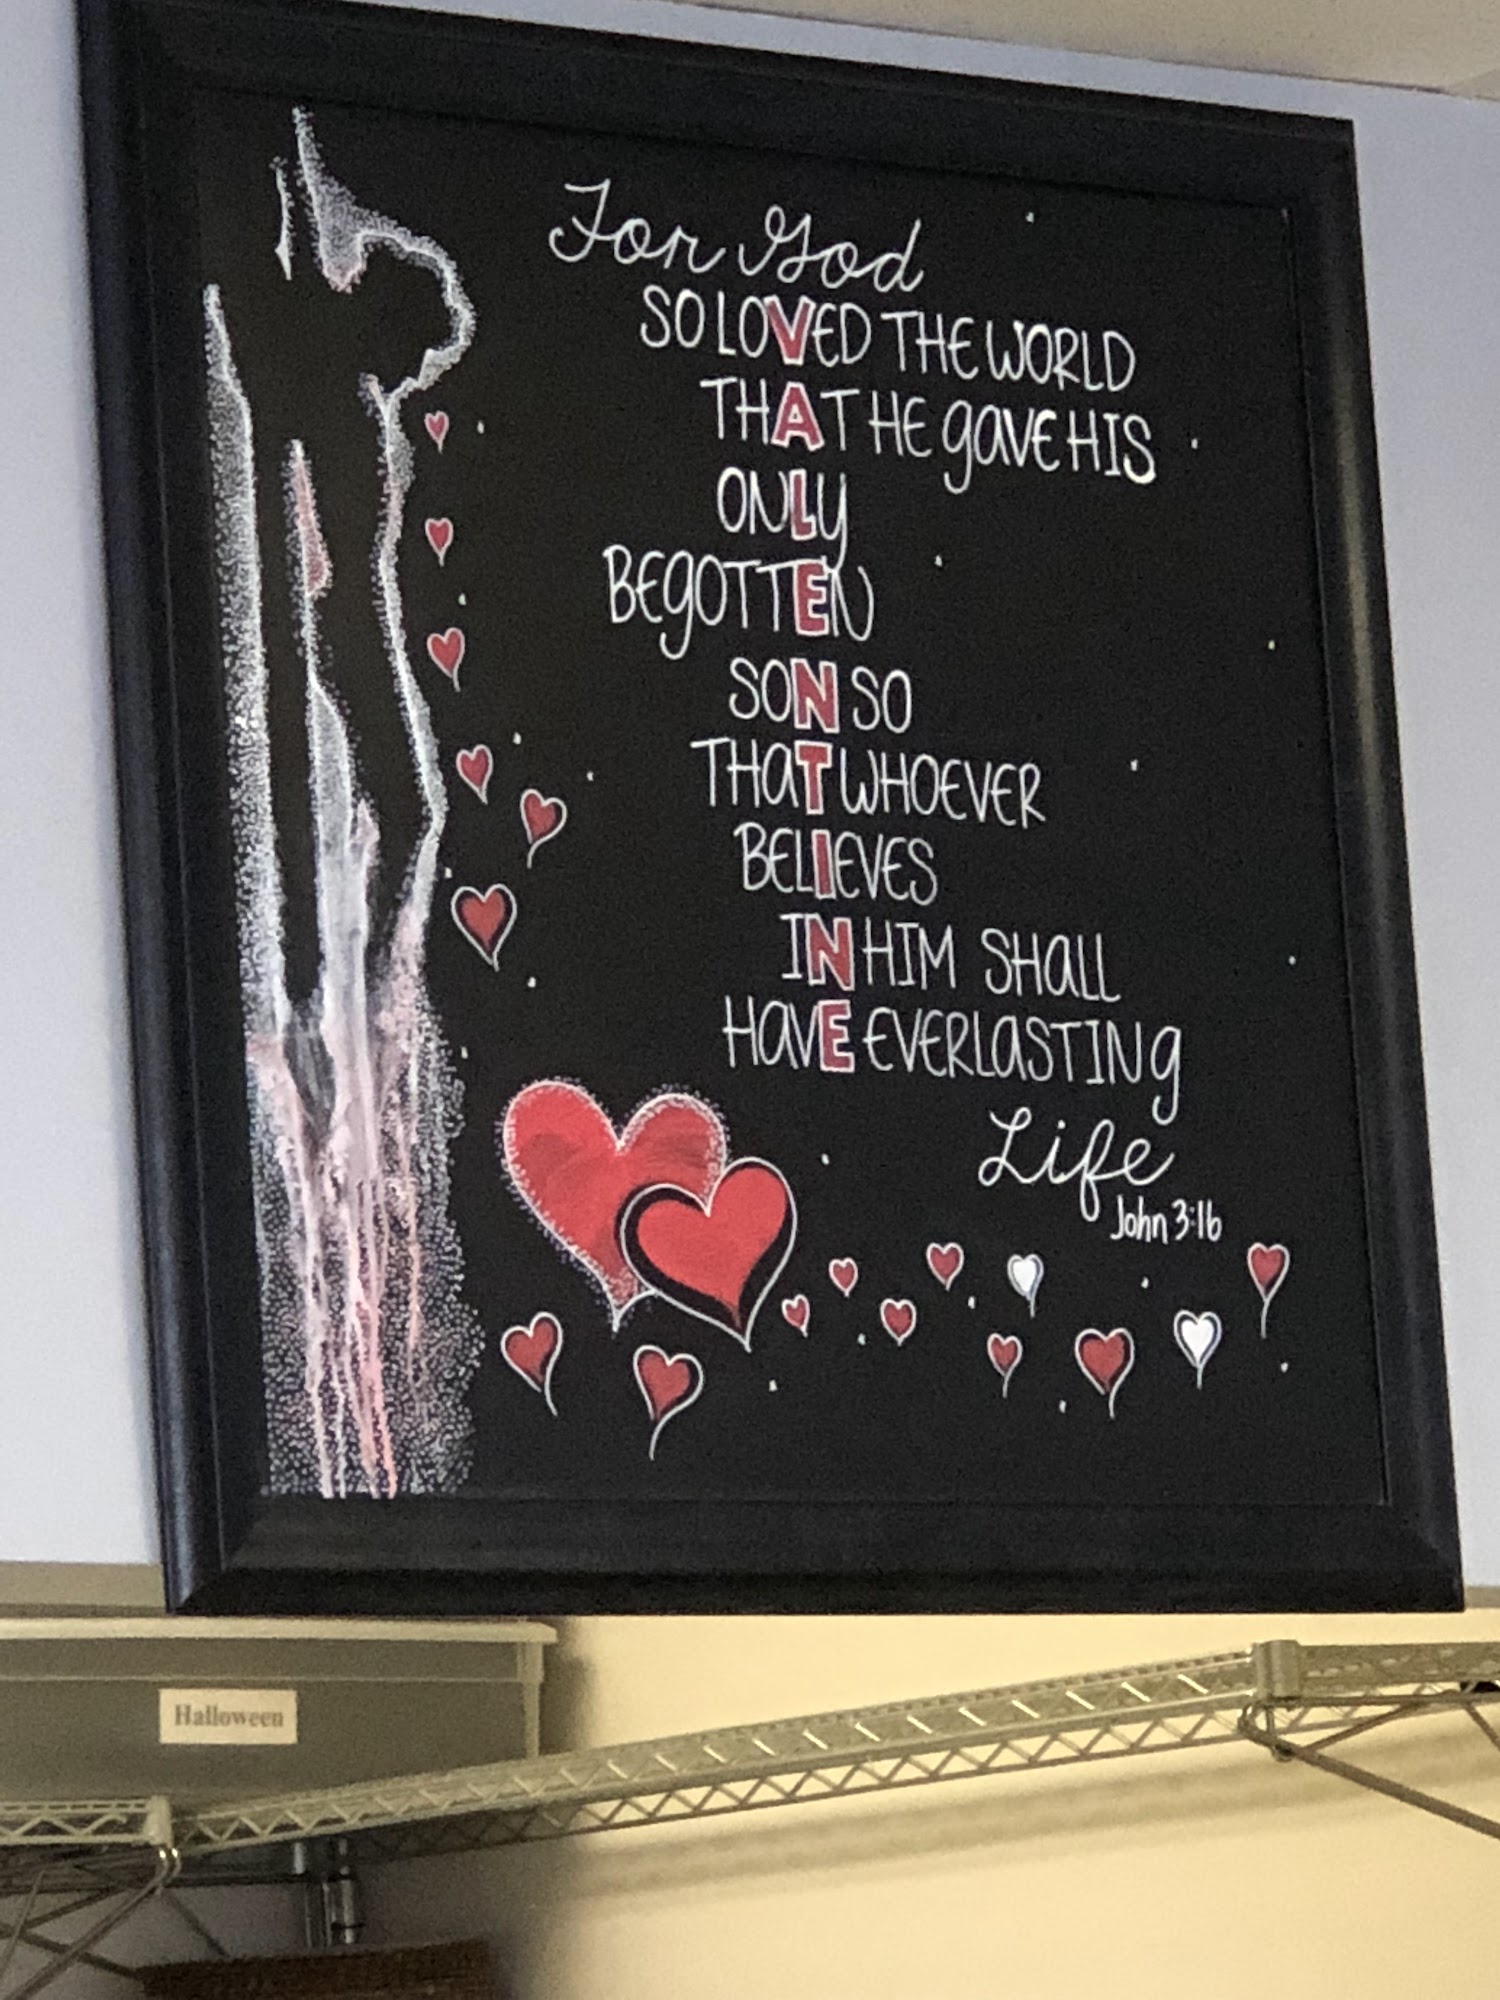 For God
SO LOVED THE WORLD
THAT HE gAVE HIS
ONLY
BEgOTTEN
SON SO
THAT WHOEVER
BELIEVES
IN HIM SHALL
HAVE EVERLASTINg
Life
John 3:16
Halloween